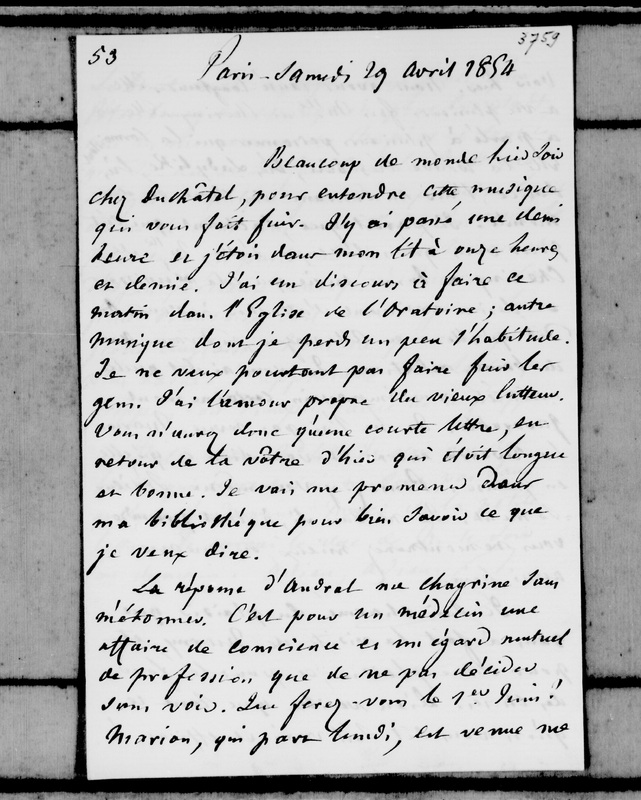 53
3759
Paris - Samedi 29 Avril 1854
Beaucoup de monde hier soir
chez Duchâtel, pour entendre cette musique
qui vous fait fuir. J'y ai passé une demi
heure et j'étois dans mon lit à onze heures
et demie. J'ai un discours à faire ce
matin dans l'Eglise de l'Oratoire ; autre
musique dont je perds un peu l'habitude.
Je ne veux pourtant pas faire fuir les
gens. J'ai l'amour propre du vieux lutteur.
Vous n'aurez donc qu'une courte lettre, en
retour de la vôtre d'hier qui étoit longue
et bonne. Je vais me promener dans
ma bibliothéque pour bien savoir ce que
je veux dire.
La réponse d'Andral me chagrine sans
m'étonner. C'est pour un médecin une
affaire de conscience et un égard mutuel
de profession que de ne pas décider
sans voir. Que ferez-vous le 1er Juin ?
Marion, qui part lundi, est venue me